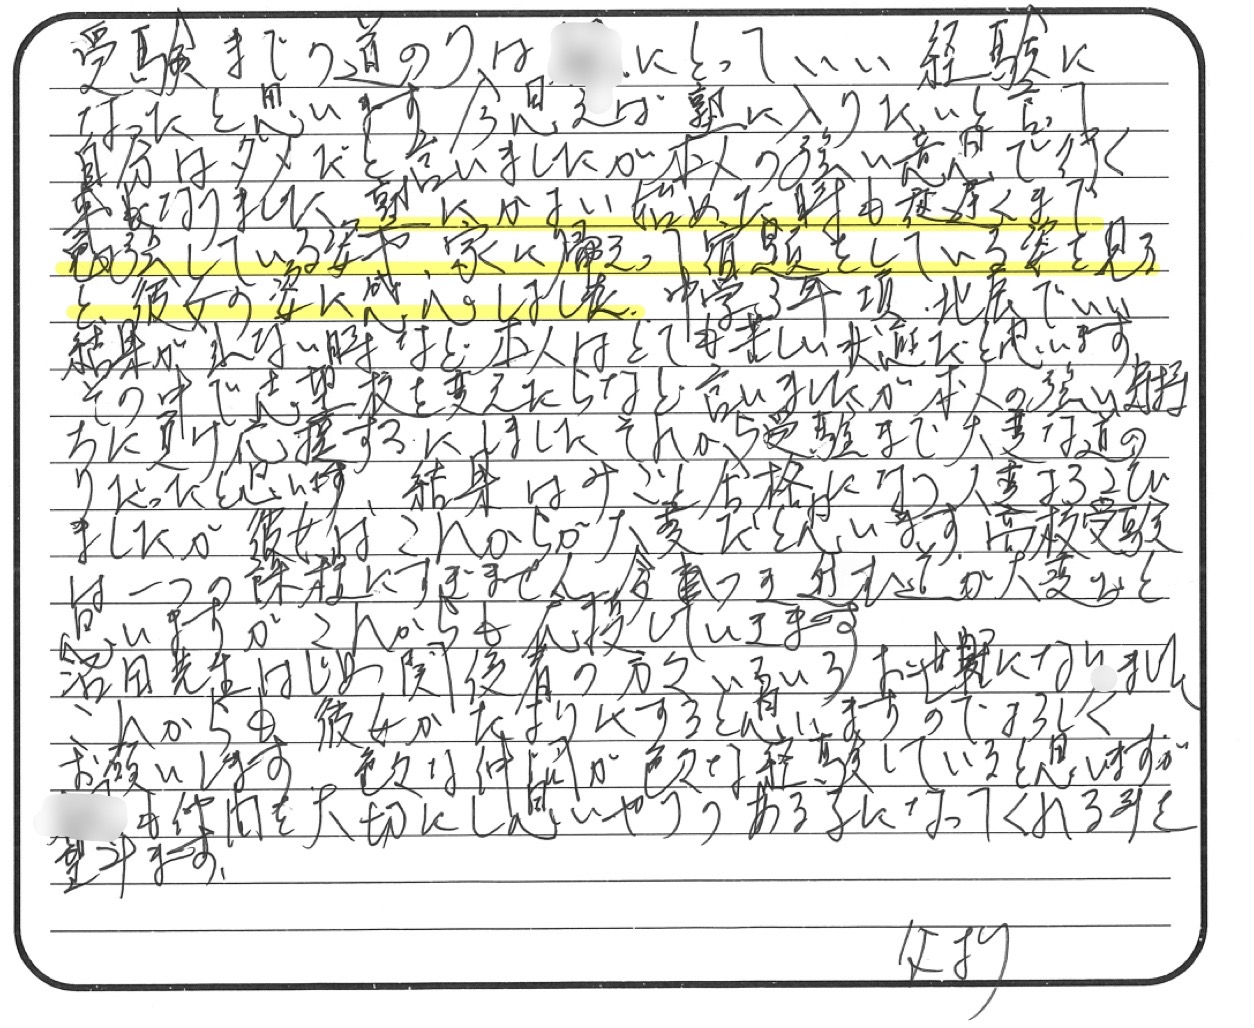 受験までの道のりは にとっていい経験に
なったと思います。今思えば塾に入りたいと言って
自分はダメだと言いましたが本人の強い意思で行く
事になりました。塾にかよい始めた時も夜遅くまで
勉強している姿や、家に帰って宿題をしている姿を見る
と、彼女の姿に感心しました。中学3年頃、北辰でいい
結果が出ない時など、本人はとても苦しい状況だと思います
その中で志望校を変えたらなど言いましたが本人の強い気持
ちに負け応援する にしました それから受験まで大変な道の
りだったと思います、結果はみごと合格になり大変よろこび
ましたが彼女はこれからが大変だと思います。高校受験
は一つの課程にすぎません。 大変だと
思いますがこれからも応援していきます
沼田先生はじめ関係者の方々いろいろお世話になりました
これからも彼女がたよりにすると思いますのでよろしく
お願いします 色々な仲間が色々な経験していると思いますが
も仲間を大切にし思いやりのある子になってくれる事を
望みます。
父より